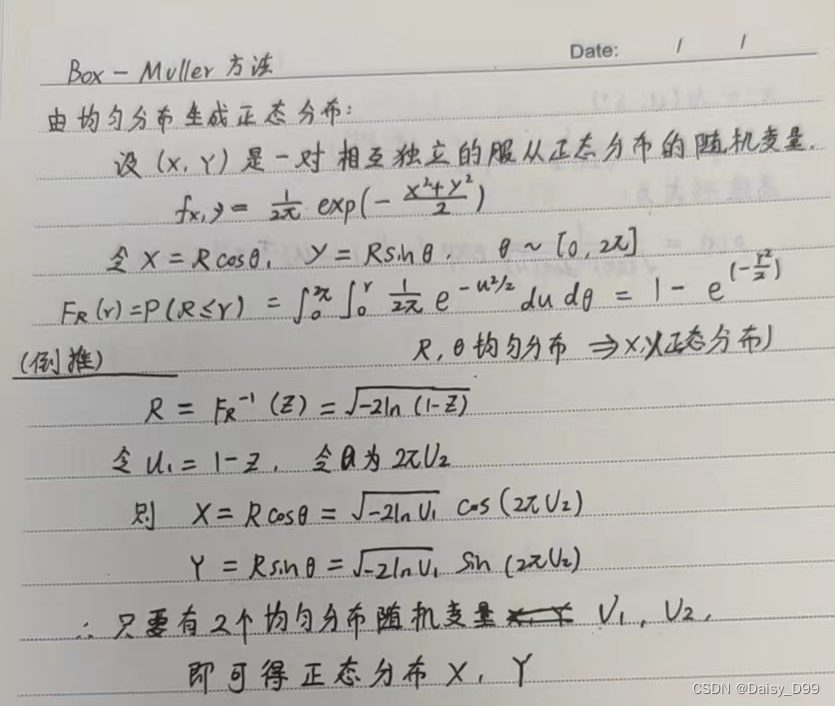 Date: / /
Box-Muller 方法
由均匀分布生成正态分布:
设 (X, Y) 是一对相互独立的服从正态分布的随机变量.
fx,y = 1/2π exp(- x²+y²/2)
令 X = R cosθ, Y = R sinθ, θ ~ [0, 2π]
F_R(r) = P(R≤r) = ∫₀^2π ∫₀^r 1/2π e^(-u²/2) du dθ = 1 - e^(-r²/2)
(倒推) R, θ 均匀分布 ⇒ X,Y正态分布)
R = F_R⁻¹(Z) = √(-2ln(1-Z))
令 U₁ = 1-Z, 令θ为 2πU₂
则 X = R cosθ = √(-2ln U₁) cos(2πU₂)
Y = R sinθ = √(-2ln U₁) sin(2πU₂)
∴ 只要有2个均匀分布随机变量 U₁, U₂,
即可得正态分布 X, Y
CSDN @Daisy_D99